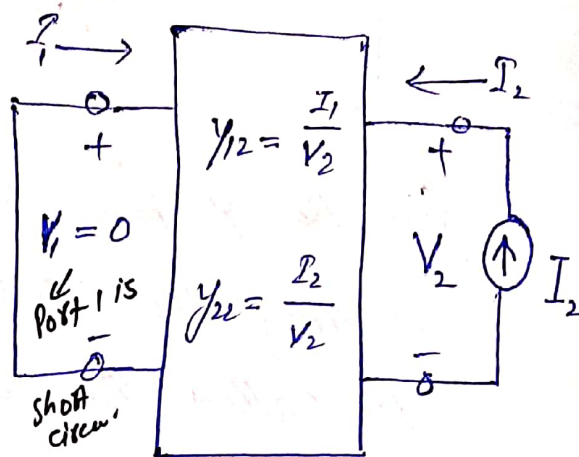 I₁
I₂
y₁₂ = I₁/V₂
+
+
V₁ = 0
V₂
I₂
Port 1 is
y₂₂ = I₂/V₂
-
-
short
circu.